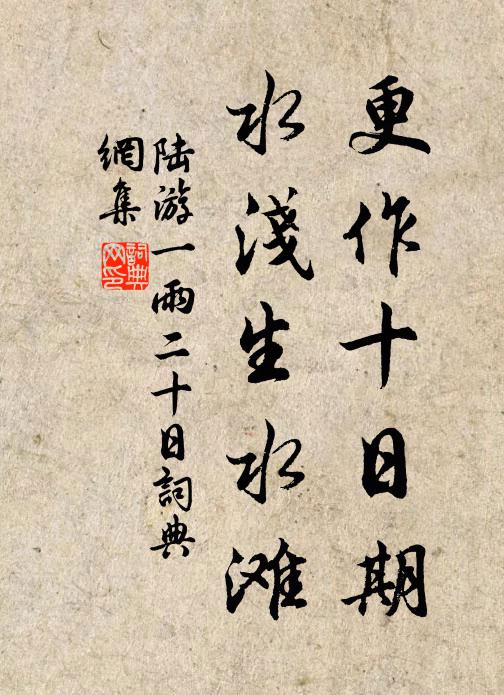 更作十日期
水淺生水滩
陆游一雨二十日詞典
網集
詞典网印